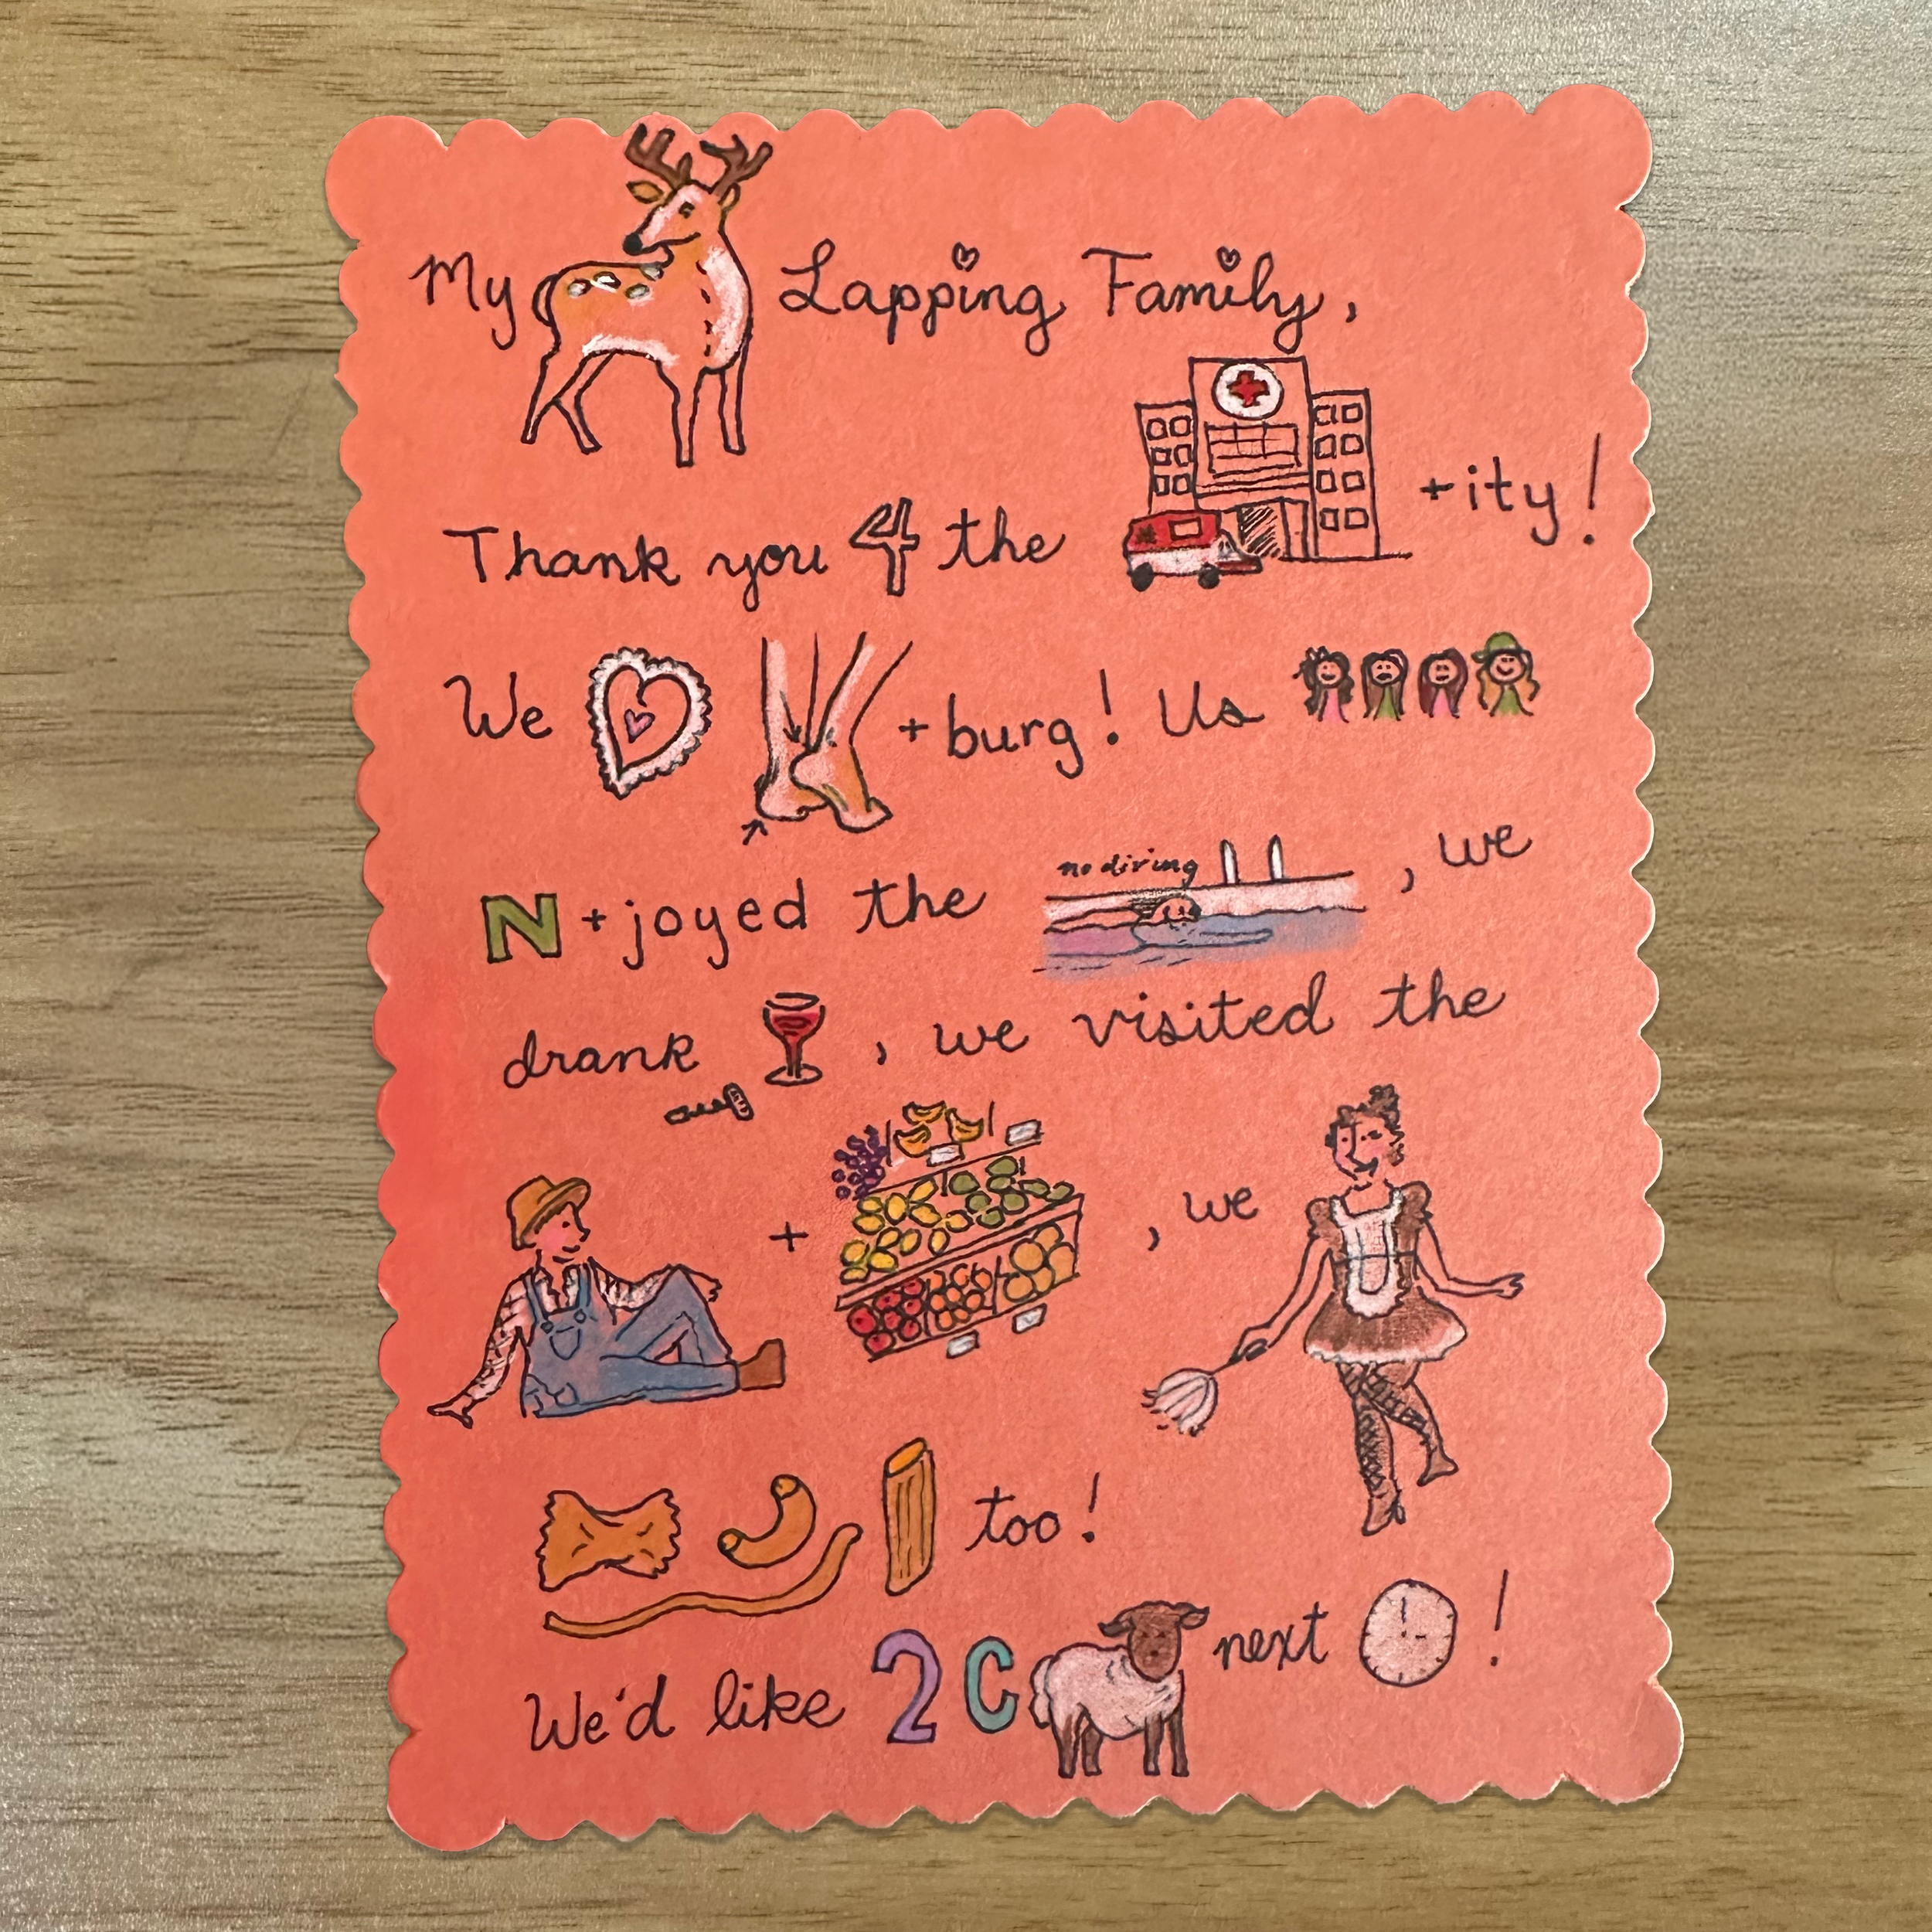 My Lapping Family,
Thank you 4 the +ity!
We + burg! Us
no diving
N+joyed the , we
drank , we visited the
+ , we
too!
We'd like 2 C next !